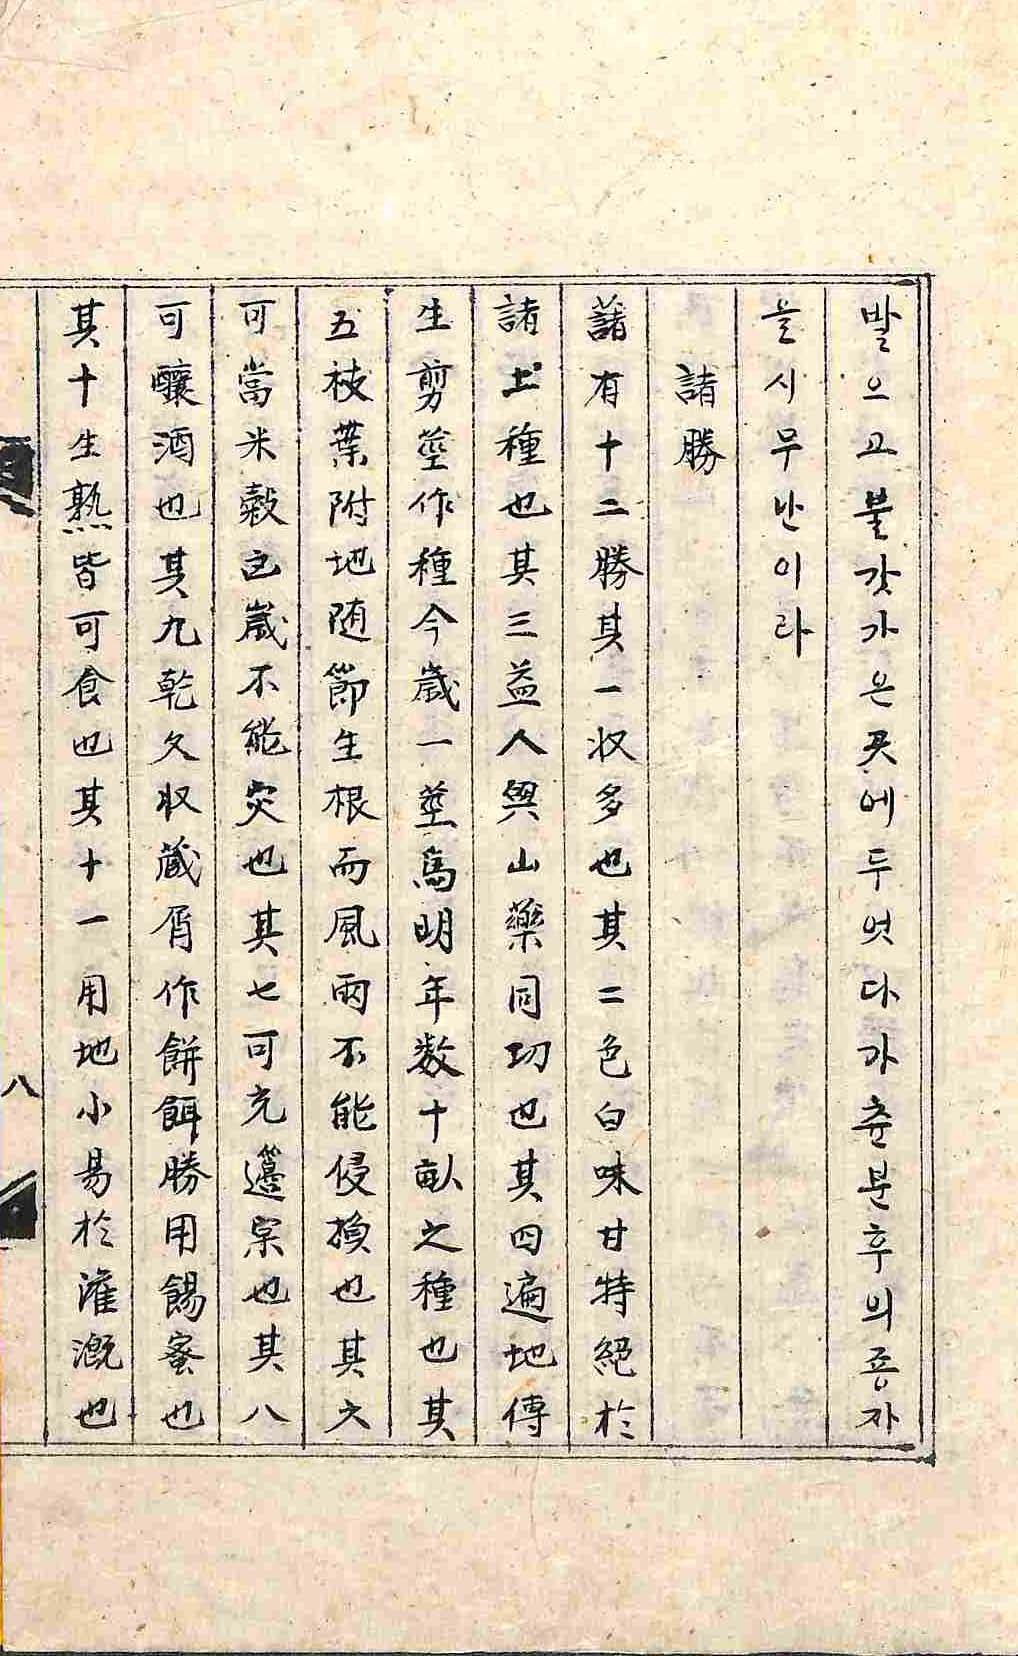 발으고불갓가온곳에두엇다가츈분후의죵자
을시무난이라
諸勝
藷有十二勝其一収多也其二色白味甘特絕於
諸土種也其三益人與山藥同功也其四遍地傳
生剪莖作種今歲一莖爲明年数十畝之種也其
五枝葉附地随節生根而風雨不能侵損也其六
可當米穀凶歲不能灾也其七可充籩宲也其八
可釀酒也其九乾久収藏屑作餅餌勝用餳蜜也
其十生熟皆可食也其十一用地小易於灌漑也
八